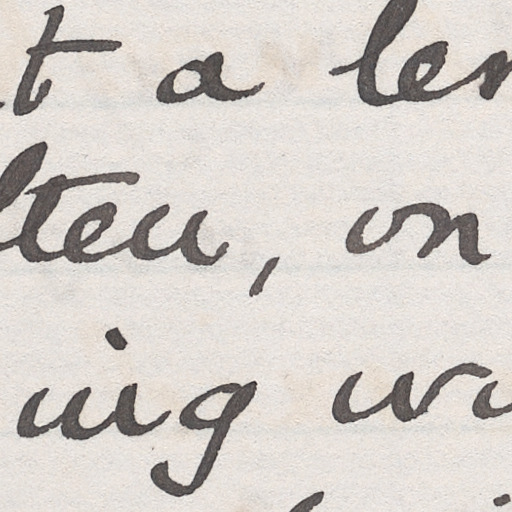 t a len
lten, on
ing wi